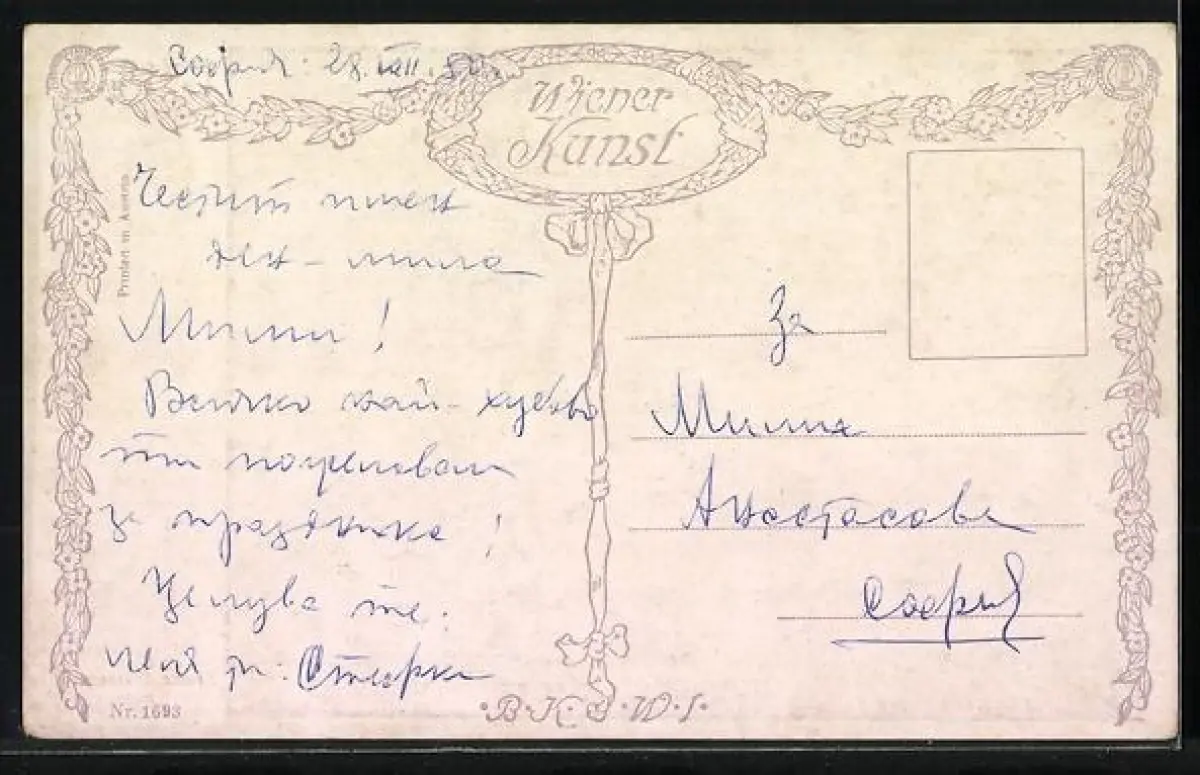 София: 28. VIII. 50.
Wiener
Kunst
Printed in Austria
Честит имен
ден - мила
Мими!
Всичко най-хубаво
ти пожелавам
за празника!
Целува те:
леля ти:
За
Мими
Анастасова
София
Nr. 1693
B·K·W·I·